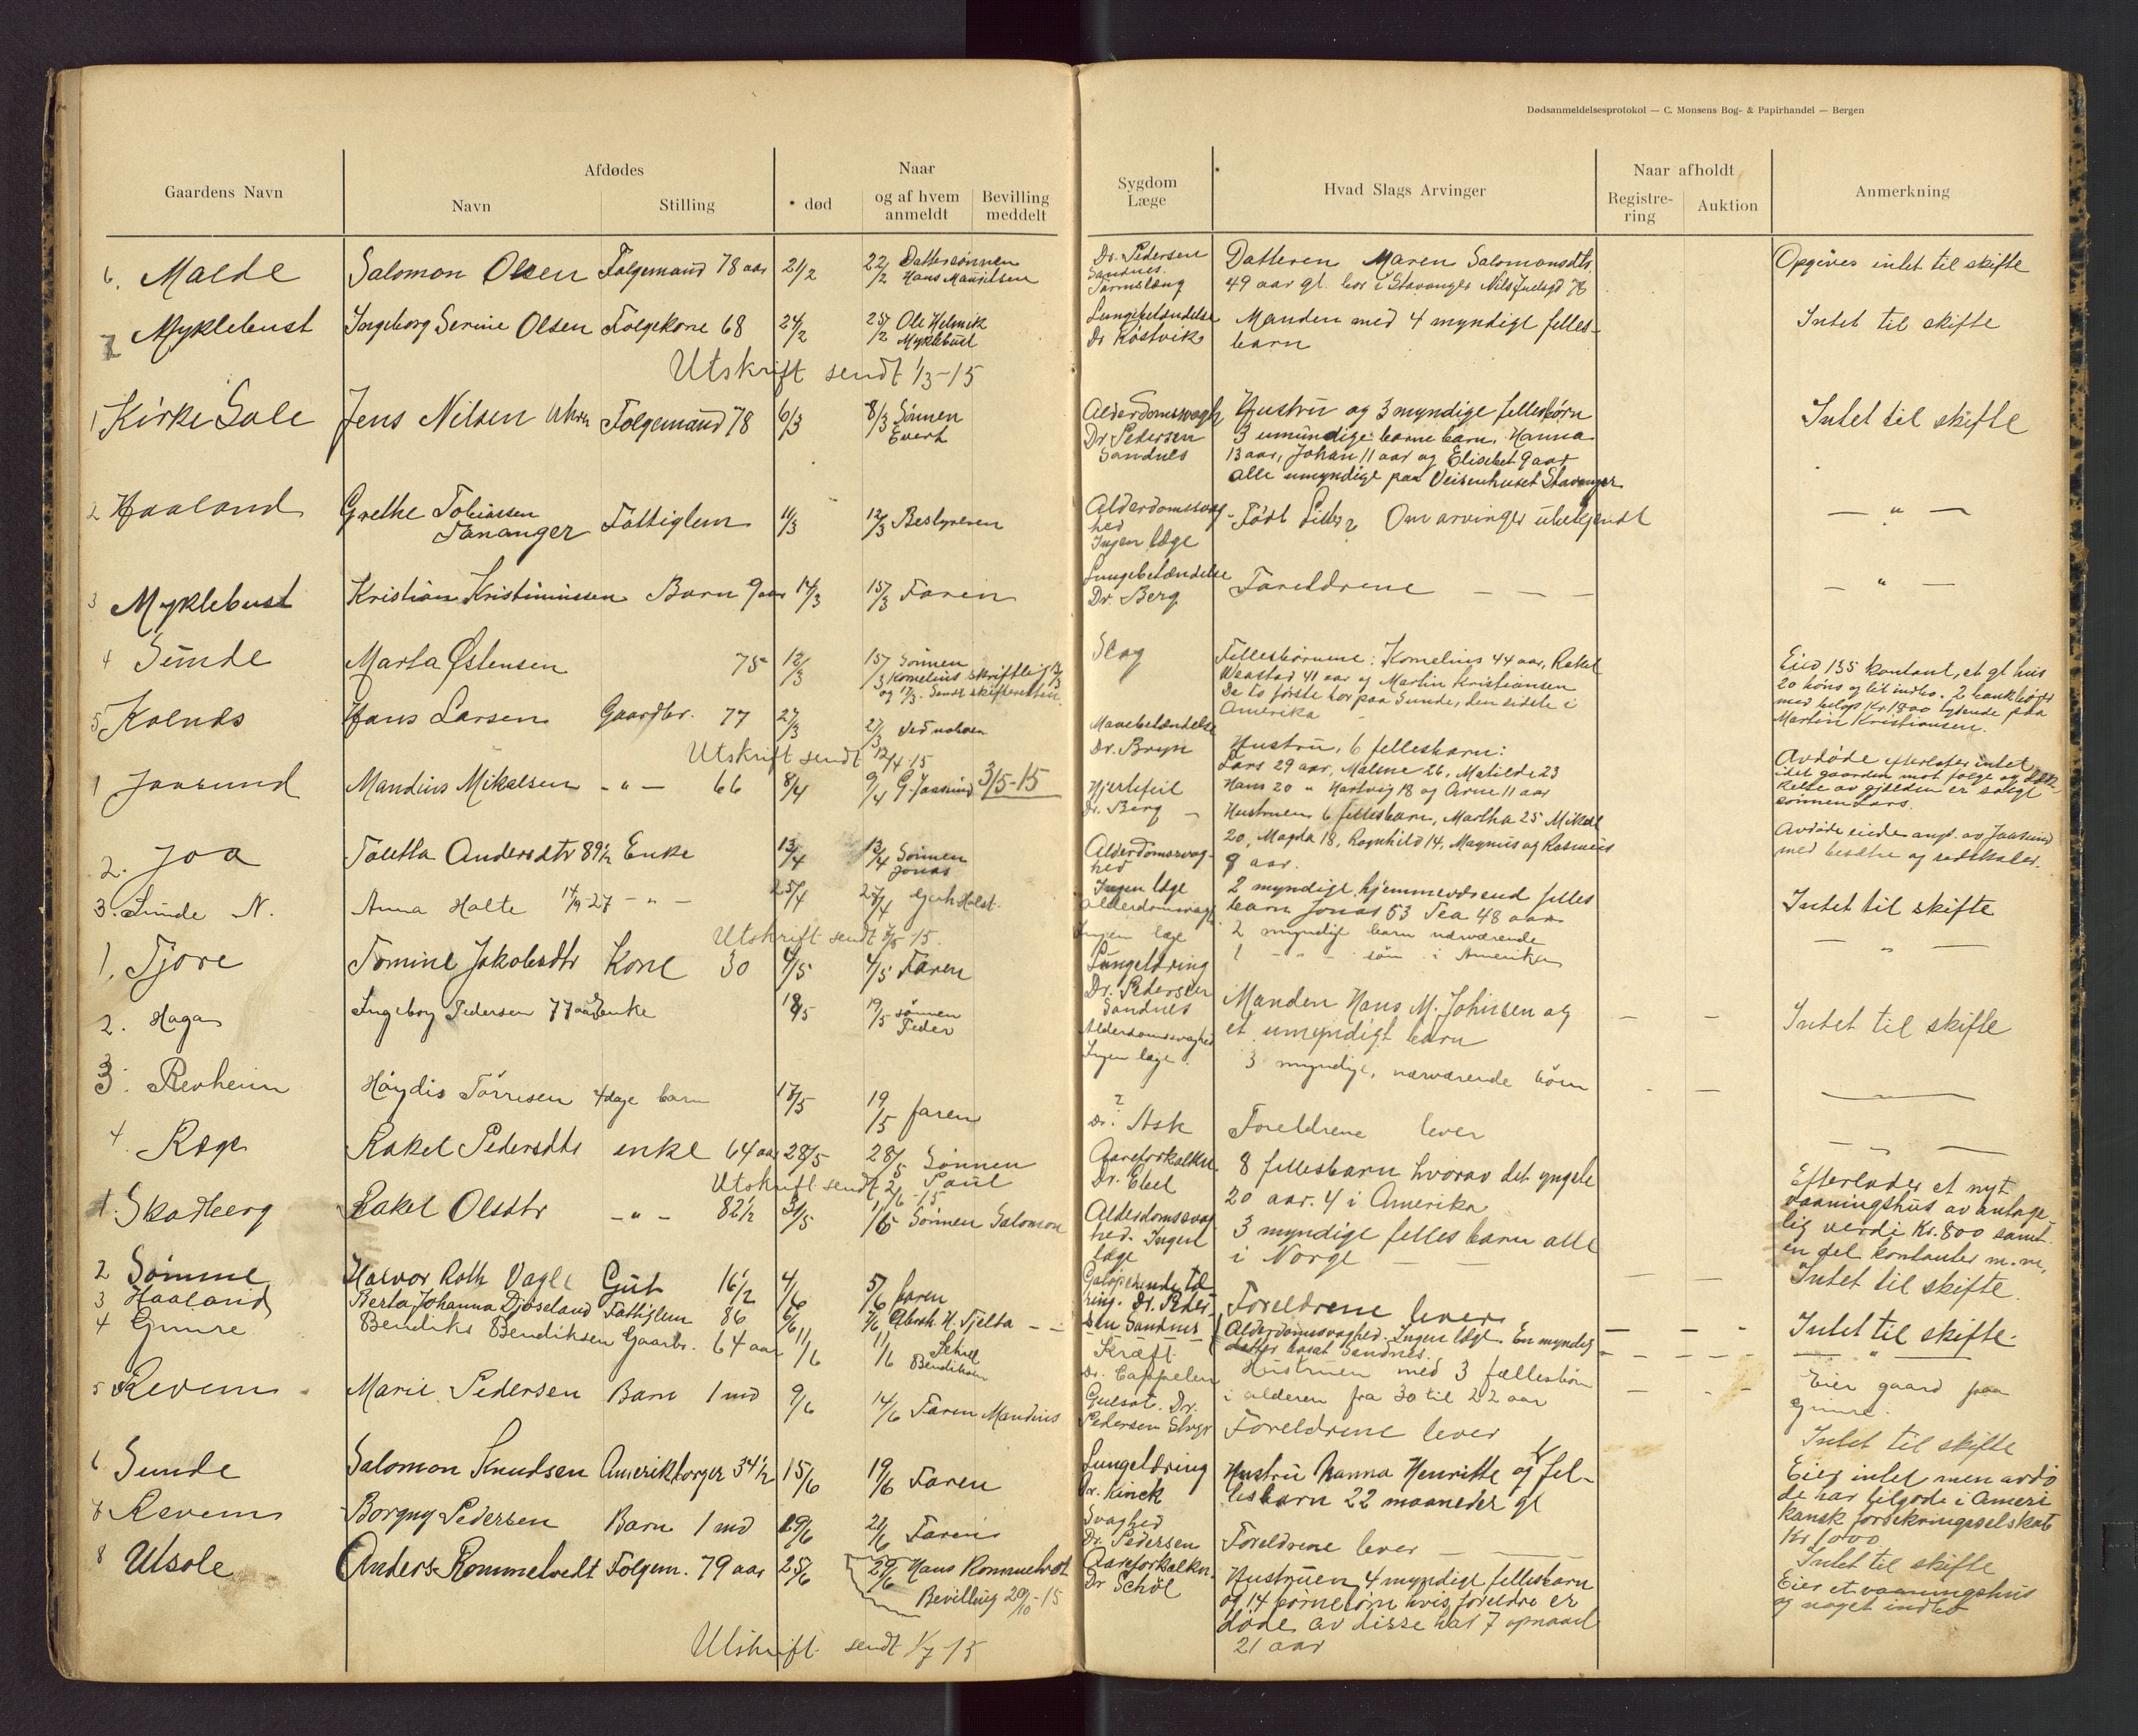 Dødsanmeldelsesprotokol — C. Monsens Bog- & Papirhandel — Bergen
Gaardens Navn
Afdødes
Navn
Stilling
Naar
død
og af hvem anmeldt
Bevilling meddelt
Sygdom Læge
Hvad Slags Arvinger
Naar afholdt
Registrering
Auktion
Anmerkning
6. Malde Salomon Olsen Følgemand 78 aar 21/2 22/2 Dattersønnen
Hans Mauritsen
Dr. Pedersen
Sandnes.
Datteren Maren Salomonsdtr.
49 aar gl. bor i Stavanger
Opgives intet til skifte
7 Myklebust Ingeborg Serine Olsen Følgekone 68 24/2 25/2 Ole Helmik
Myklebust
Lungebetændelse
Dr Røstvik
Manden med 4 myndige felles-
barn
Intet til skifte
Utskrift sendt 1/3-15
1 Kirke Sole Jens Nilsen Følgemand 78 6/3 8/3 Sønnen
Evert
Alderdomsvagh
Dr Pedersen
Sandnes
Hustru og 3 myndige fellesbørn
3 umundige barnebarn, Hanna
13 aar, Johan 11 aar og Elisabet 9 aar
alle umyndige paa Veisenhuset Stavanger
Intet til skifte
2 Haaland Grethe Tobiassen
Tananger Fattiglem 11/3 12/3 Bestyreren
Alderdomssvag-
hed
Ingen læge
Født Om arvinger ubekjendt
— " —
3 Myklebust Kristian Kristiniussen Barn 9 aar 14/3 15/3 Faren
Lungebetændelse
Dr. Berg
Foreldrene — — —
— " —
4 Sunde Marta Østensen 75 12/3 15/3 Sønnen
Kornelius skriftlig
og 17/3. Sendt skifteretten.
Slag
Fellesbørnene: Kornelius 44 aar, Rakel
41 aar og Martin Kristiansen
De to første bor paa Sunde, den sidste i
Amerika
Eied 135 kontant, et gl hus
20 høns og lit indbo. 2 bankbøker
med beløp Kr. 1800 lydende paa
Martin Kristiansen.
5 Kolnes Hans Larsen Gaardbr. 77 27/3 27/3 Ved naboen
Mavebetændelse
Dr. Bryn
Hustru, 6 fellesbarn:
Lars 29 aar, Malene 26, Matilde 23
Hans 20 " Hartvig 18 og Arne 11 aar
Avdøde efterlater intet
idet gaarden mot følge og dæk-
kelse av gjælden er solgt
sønnen Lars.
Utskrift sendt 12/4 15
1 Jaasund Mandius Mikalsen — " — 66 8/4 9/4 G. Jaasund 3/5-15
Hjertefeil
Dr. Berg —
Hustruen 6 fellesbarn, Martha 25 Mikal
20, Magda 18, Ragnhild 14, Magnus og Rasmus
9 aar.
Avdøde eiede anp. av Jaasund
med besætn og redskaber.
2. Joa Taletta Andersdtr 89 1/2 Enke 13/4 13/4 Sønnen
Jonas
Alderdomssvag-
hed
Ingen læge
2 myndige hjemmeværend felles
barn Jonas 53 Tea 48 aar
Intet til skifte
3. Sunde N. Anna Holte — " — 25/4 27/4
Alderdomsvagh.
Ingen læge
2 myndige barn nærværende
1 — " — søn i Amerika
— " —
Utskrift sendt 3/5-15.
1. Tjore Tomine Jakobsdtr Kone 30 4/5 4/5 Faren
Lungetæring
Dr. Pedersen
Sandnes
Manden Hans M. Johnsen og
et umyndigt barn
— —
Intet til skifte
2. Haga Ingeborg Pedersen 77 aar Enke 18/5 19/5 sønnen
Peder
Alderdomsvaghed
Ingen læge.
3 myndige, nærværende børn
3. Revheim Høydis Tørresen 4 dage barn 17/5 19/5 faren
?
Dr. Ask
Foreldrene lever
4 Rege Rakel Pedersdtr enke 64 aar 28/5 28/5 Sønnen
Paul
Aareforkalkn.
Dr. Ebel
8 fellesbarn hvorav det yngste
20 aar. 4 i Amerika
Efterlader et nyt
vaaningshus av antage-
lig verdi Kr. 800 samt
en del kontanter m.m,
Utskrift sendt 2/6-15
1. Skadberg Rakel Olsdtr — " — 82 1/2 31/5 1/6 Sønnen Salomon
Alderdomssvag
hed. Ingen
læge
3 myndige felles barn alle
i Norge — —
Intet til skifte.
2 Sømme Halvor Roth Vagle Gut 16 1/2 4/6 5/6 faren
Galoperende tæ-
ring. Dr. Peder-
sen Sandnes
Foreldrene lever
Intet til skifte.
3 Haaland Berta Johanna Djøseland Fattiglem 86 6/6 7/6 Abrah. H. Tjelta
Alderdomsvaghed. Ingen læge. En myndig
datter bosat Sandnes.
4 Gimre Bendiks Bendiksen Gaarbr. 64 aar 11/6 11/6
Bendiksen
Kræft.
Dr. Cappelen
Hustruen med 3 fællesbørn
i alderen fra 30 til 22 aar
Eier gaard paa
Gimre.
5 Revem Marie Pedersen Barn 1 md 9/6 14/6 Faren Mandius
Gulsot. Dr.
Pedersen
Foreldrene lever
Intet til skifte
6 Sunde Salomon Knudsen Amerikborger 34 1/2 15/6 19/6 Faren
Lungetæring
Dr. Kinck
Hustru Nanna Henritte og 1 fel-
lesbarn 22 maaneder gl
Eier intet men avdø
de har tilgode i Ameri
kansk forsikringsselskab
Kr 1000
7 Revem Borgny Pedersen Barn 1 md 19/6 21/6 Faren
Svaghed
Dr. Pedersen
Foreldrene lever —
Intet til skifte
8 Utsole Anders Rommetvedt Følgem. 79 aar 25/6 29/6 Hans Rommetvedt
Bevilling 20/10-15
Aareforkalkn.
Dr Schöl
Hustruen, 4 myndige fellesbarn
og 14 børnebørn hvis foreldre er
døde av disse har 7 opnaaet
21 aar
Eier et vaaningshus
og noget indbo
Utskrift sendt 1/7-15